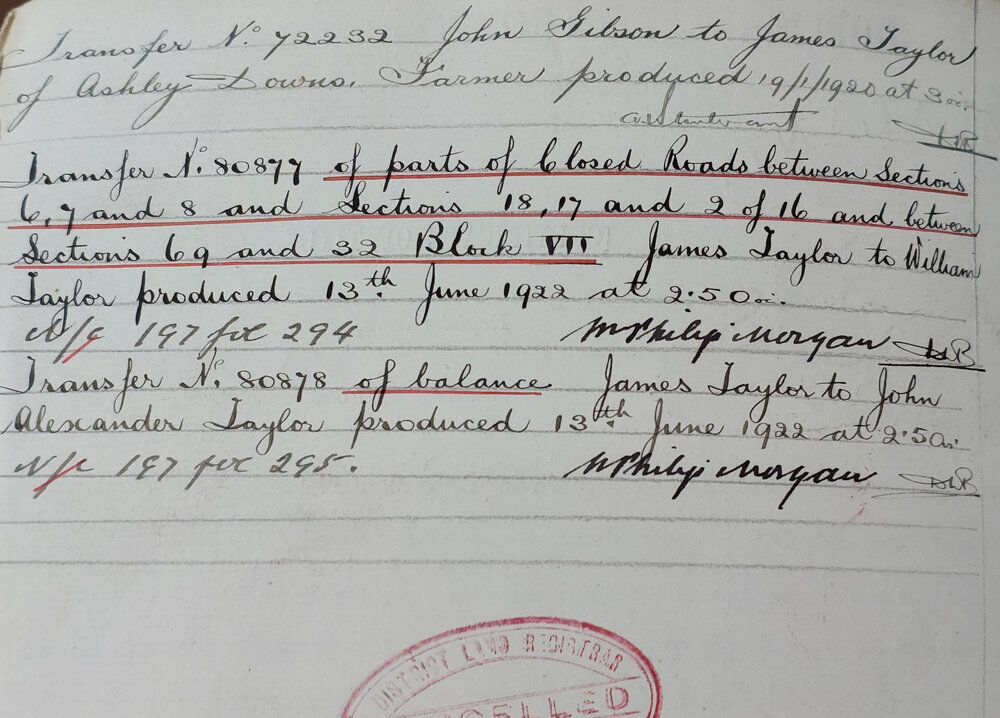 Transfer No. 72232 John Gibson to James Taylor
of Ashley Downs. Farmer produced 19/1/1920 at 3 oc.
DLR
Transfer No. 80877 of parts of Closed Roads between Sections
6, 7 and 8 and Sections 18, 17 and 2 of 16 and between
Sections 69 and 32 Block VII James Taylor to William
Taylor produced 13th. June 1922 at 2.50 oc.
N/c 197 fol 294 W Philip Morgan DLR
Transfer No. 80878 of balance James Taylor to John
Alexander Taylor produced 13th. June 1922 at 2.50c.
N/c 197 fol 295. W Philip Morgan DLR
DISTRICT LAND REGISTRAR
CANCELLED